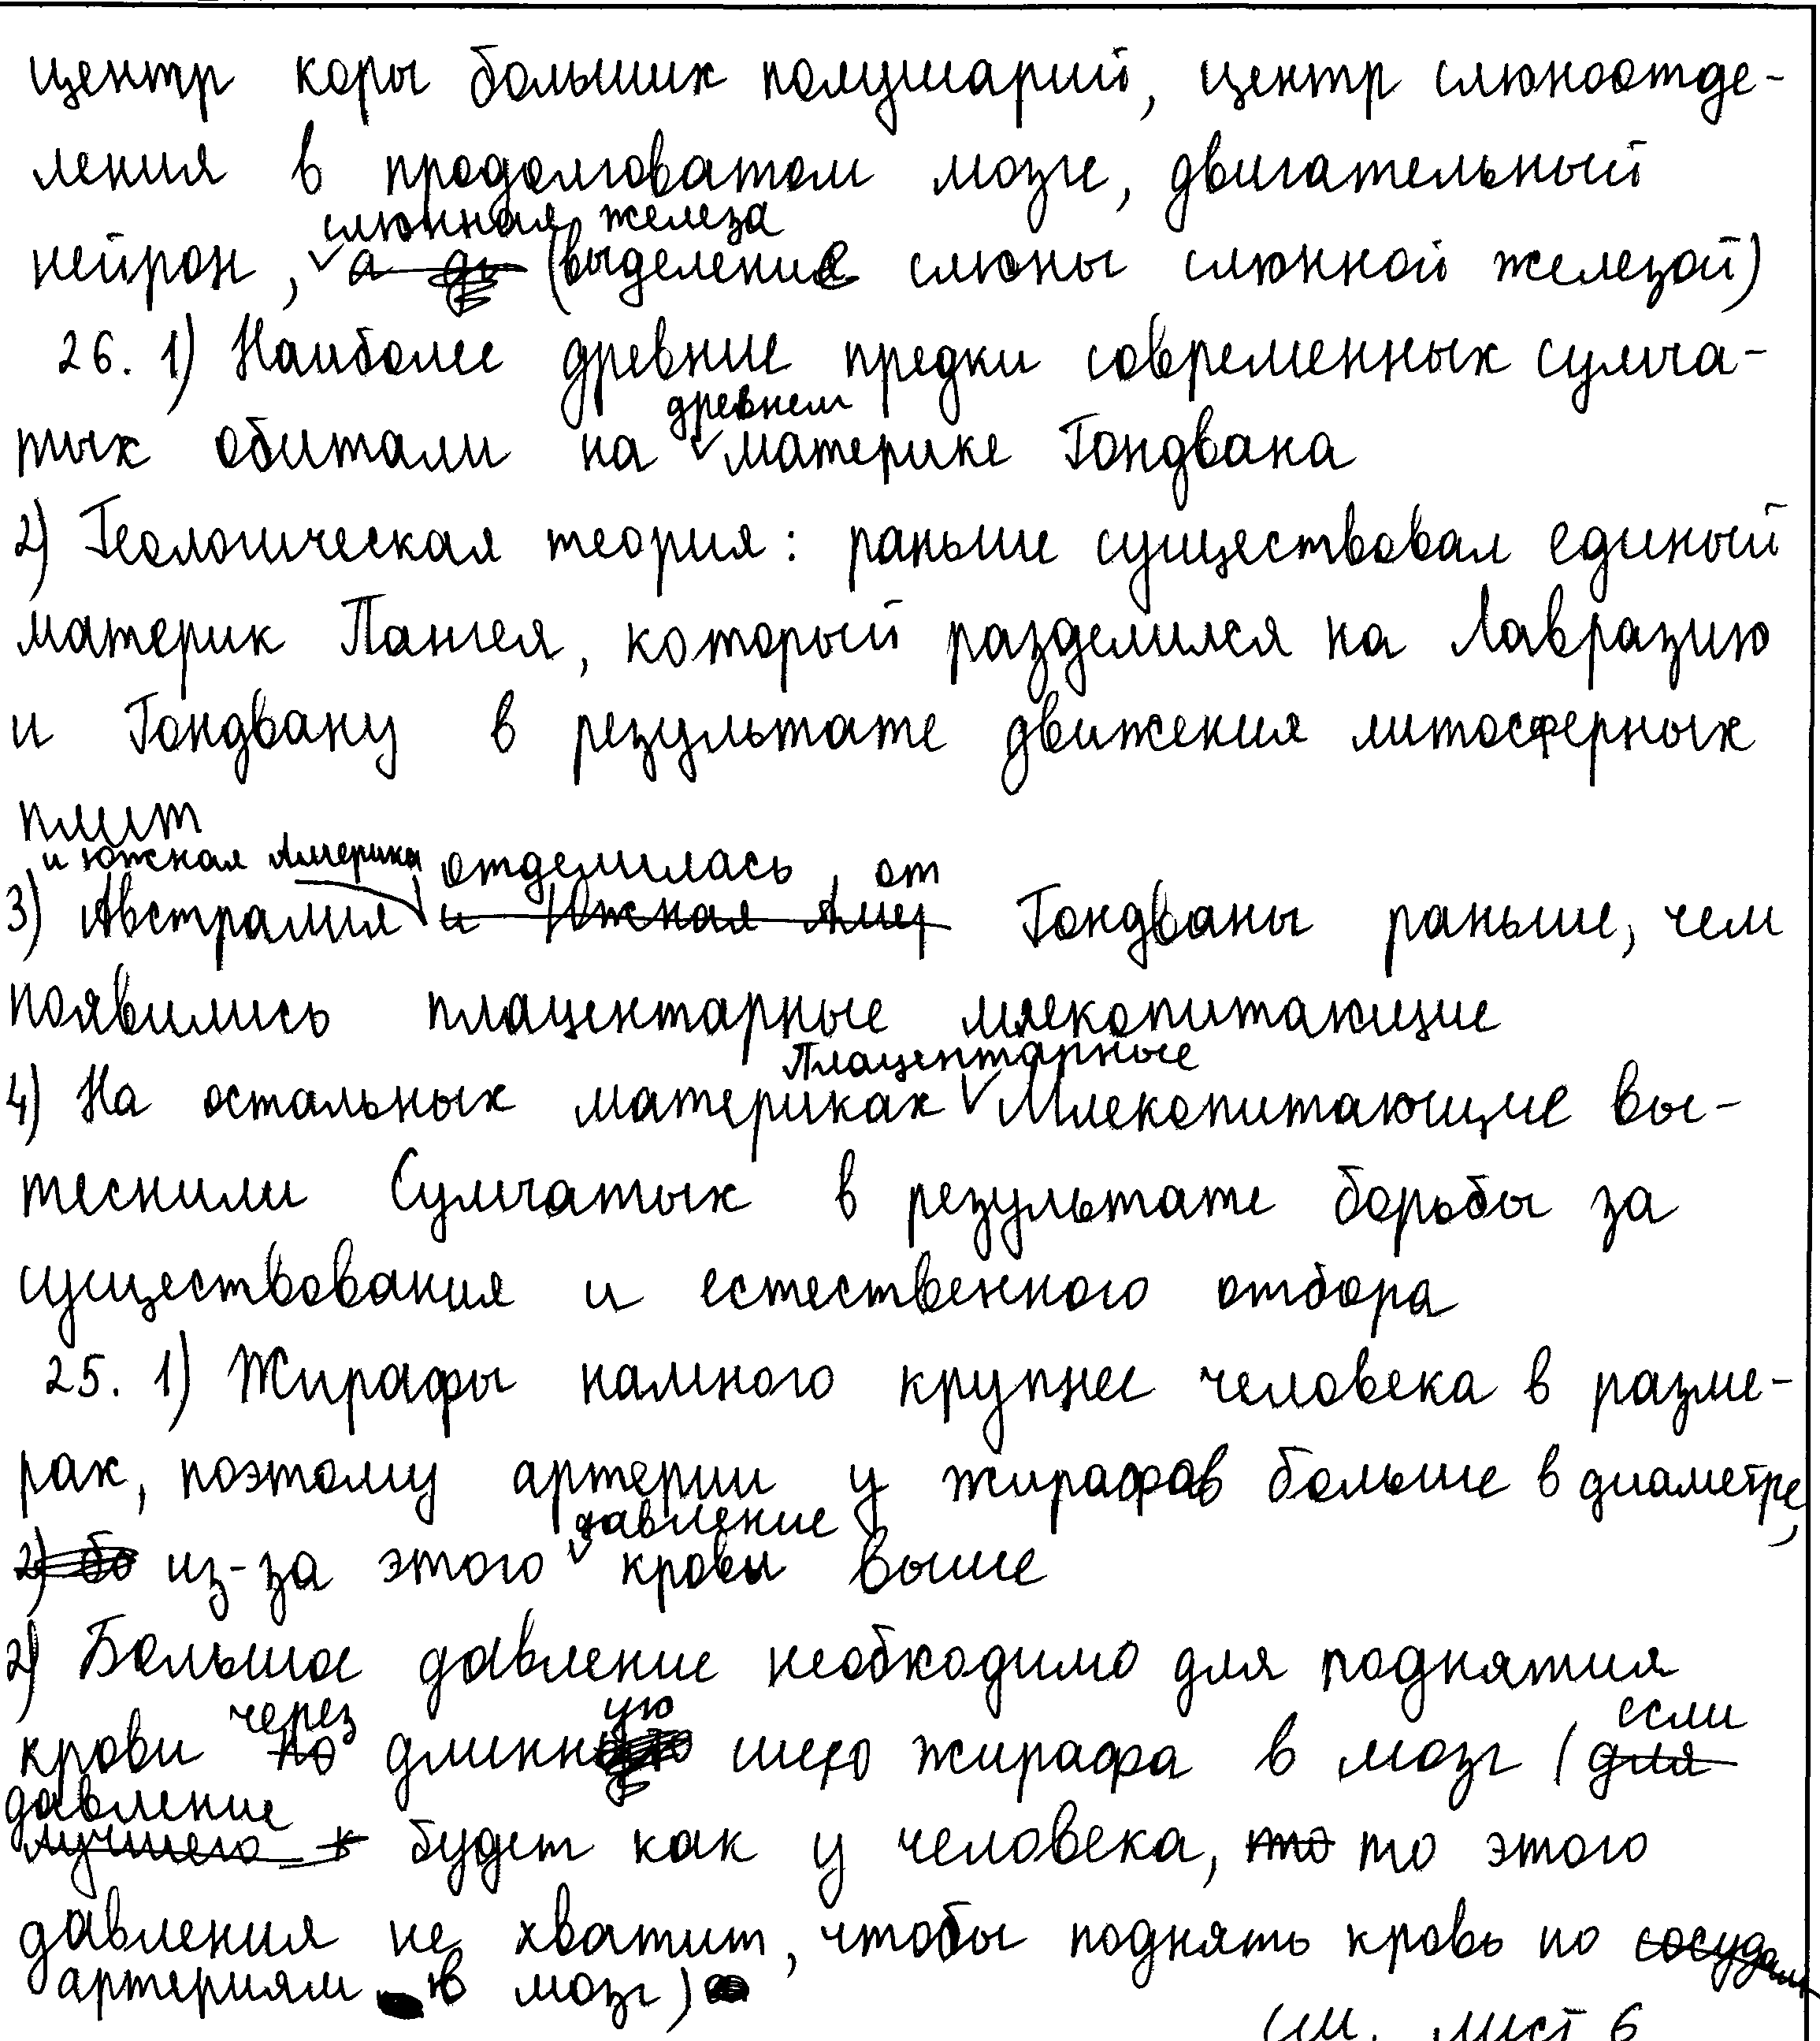 центр коры больших полушарий, центр слюноотде-
ления в продолговатом мозге, двигательный
слюнная железа
нейрон, (выделение слюны слюнной железой)
26. 1) Наиболее древние предки современных сумча-
древнем
тых обитали на материке Гондвана
2) Геологическая теория: раньше существовал единый
материк Пангея, который разделился на Лавразию
и Гондвану в результате движения литосферных
плит
и южная Америка отделилась от
3) Австралия и Южная Амер Гондваны раньше, чем
появились плацентарные млекопитающие
Плацентарные
4) На остальных материках Млекопитающие вы-
теснили Сумчатых в результате борьбы за
существования и естественного отбора
25. 1) Жирафы намного крупнее человека в разме-
рах, поэтому артерии у жирафов больше в диаметре,
давление
из-за этого крови выше
2) Большое давление необходимо для поднятия
через ую если
крови по длинн шею жирафа в мозг (для
давление
лучшего к будет как у человека, то то этого
давления не хватит, чтобы поднять кровь по сосудам
артериям в мозг)
(см. лист 6